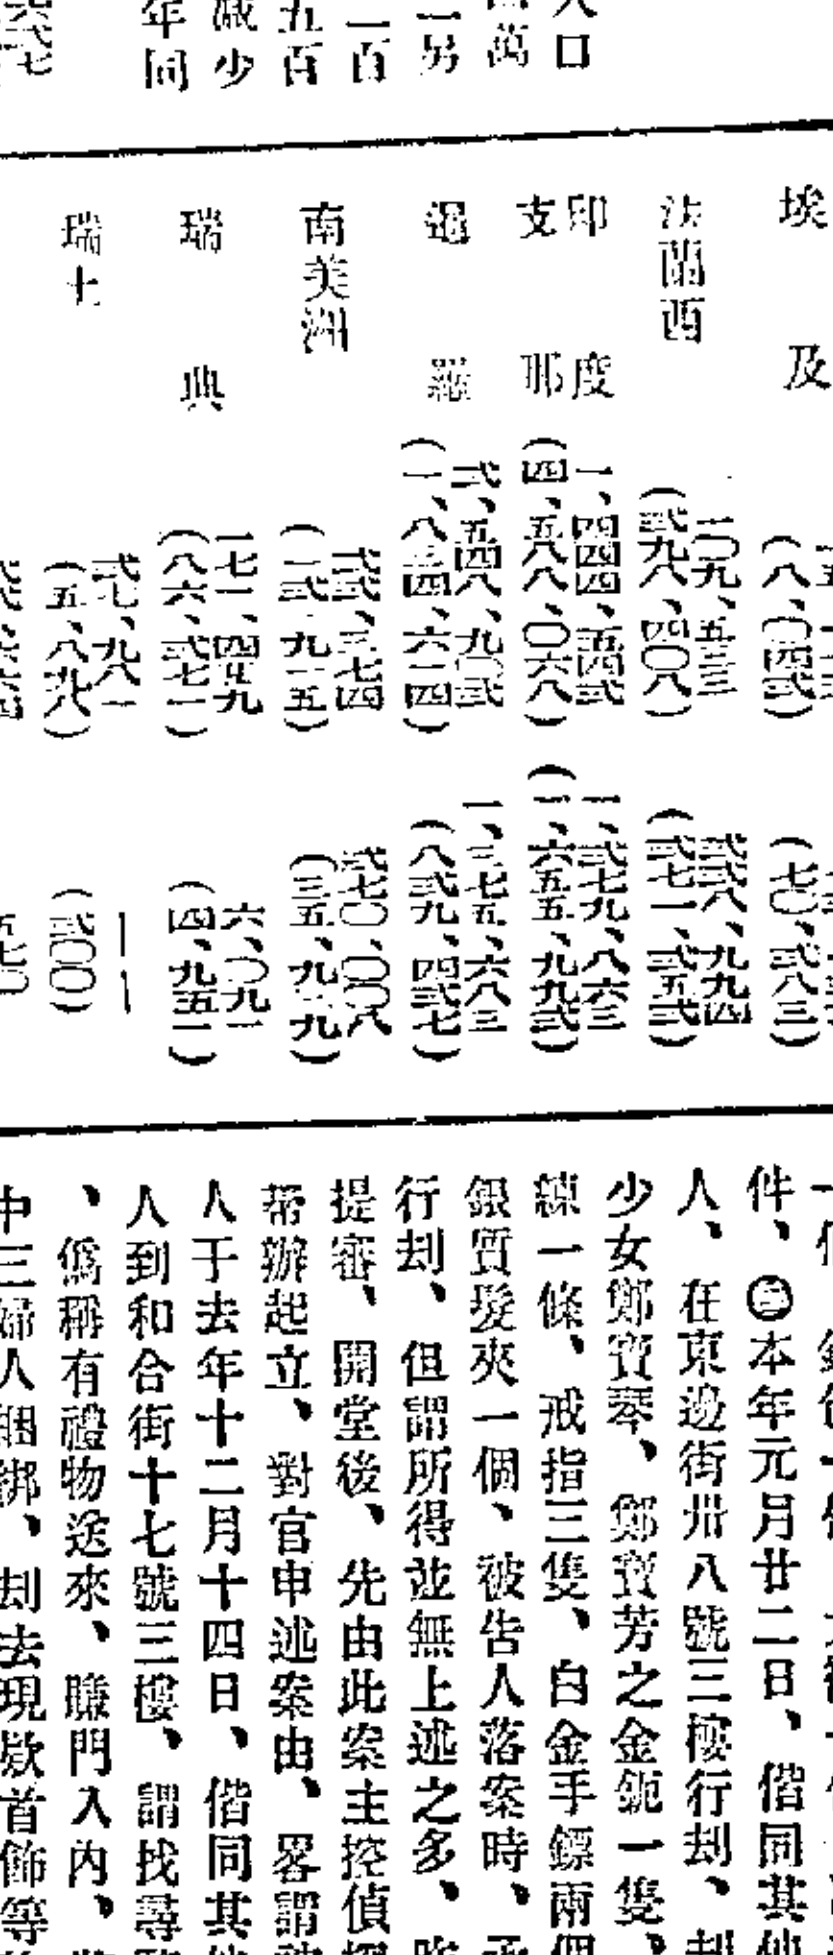 入口
萬
二另
一百
五百
減少
年同
六弍七
埃及
(八、〇四弍)
(七〇、弍八三)
法蘭西
一〇九、五三三
(弍九八、四〇八)
弍弍八、九九四
(弍七一、弍五弍)
印度
一、四四四、五四弍
一、弍七九、八六三
支那
(四、五八八、〇六八)
(一、六五五、九九弍)
暹羅
弍、五四八、九〇弍
(一、八三四、六一四)
一、三七五、六八三
(八弍九、四弍七)
南美洲
弍弍、三七四
(一弍、九一五)
弍七〇、〇〇八
(三五、九 九)
瑞典
一七一、四七九
(八六、弍七一)
六、〇九一
(四、九五一)
瑞士
弍七、九八一
(五、八九八)
——
(弍〇〇)
五七〇
件、 本年元月廿二日、偕同其他
人、在東邊街卅八號三樓行刦、刦
少女鄭寶琴、鄭寶芳之金鈪一隻、
練一條、戒指三隻、白金手鏢兩個
銀質髮夾一個、被告人落案時、承
行刦、但謂所得並無上述之多、昨
提審、開堂後、先由此案主控偵探
帮辦起立、對官申述案由、畧謂被
人于去年十二月十四日、偕同其他
人到和合街十七號三樓、謂找尋
、僞稱有禮物送來、賺門入內、
中三婦人綑綁、刦去現欵首飾等